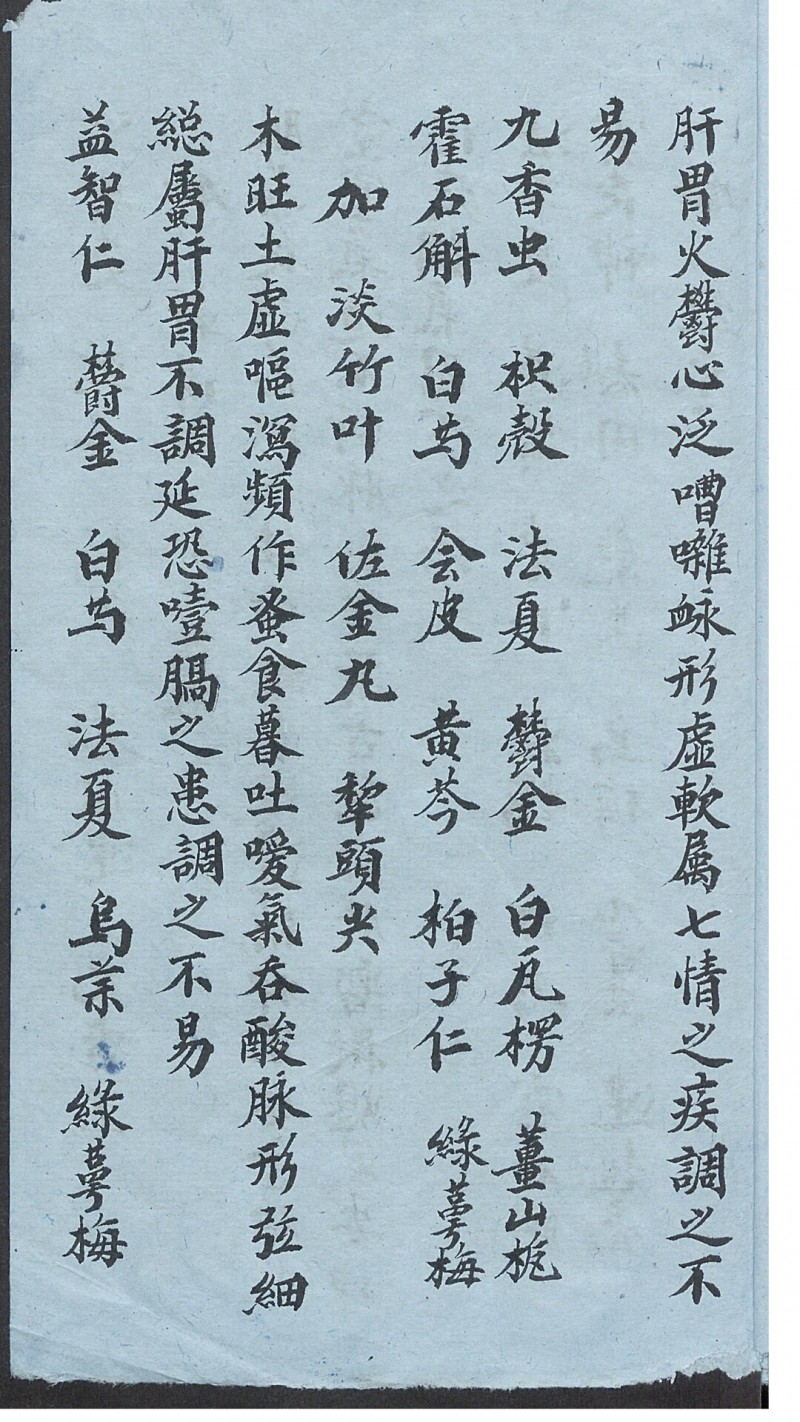 肝胃火鬱心泛嘈囃䘑形虛軟属七情之疾調之不
易
九香虫 枳殼 法夏 鬱金 白瓦楞 薑山栀
霍石斛 白芍 会皮 黄芩 柏子仁 綠萼梅
加 淡竹叶 佐金丸 犂頭尖
木旺土虛嘔瀉頻作蚤食暮吐噯氣吞酸脉形弦細
総屬肝胃不調延恐噎膈之患調之不易
益智仁 鬱金 白芍 法夏 烏药 綠萼梅